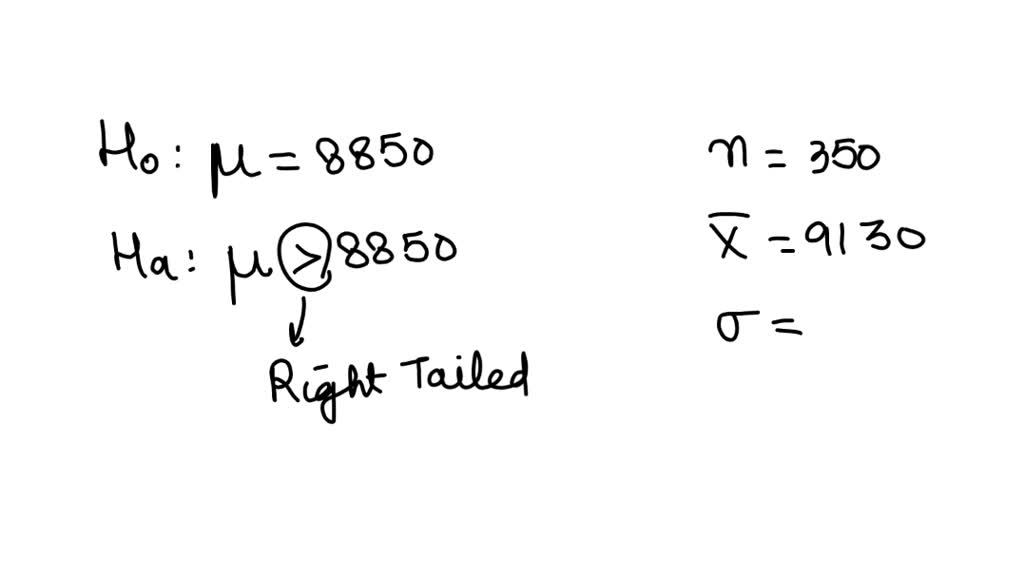 H₀: μ = 8850
Ha: μ > 8850
Right Tailed
n = 350
X̅ = 9130
σ =